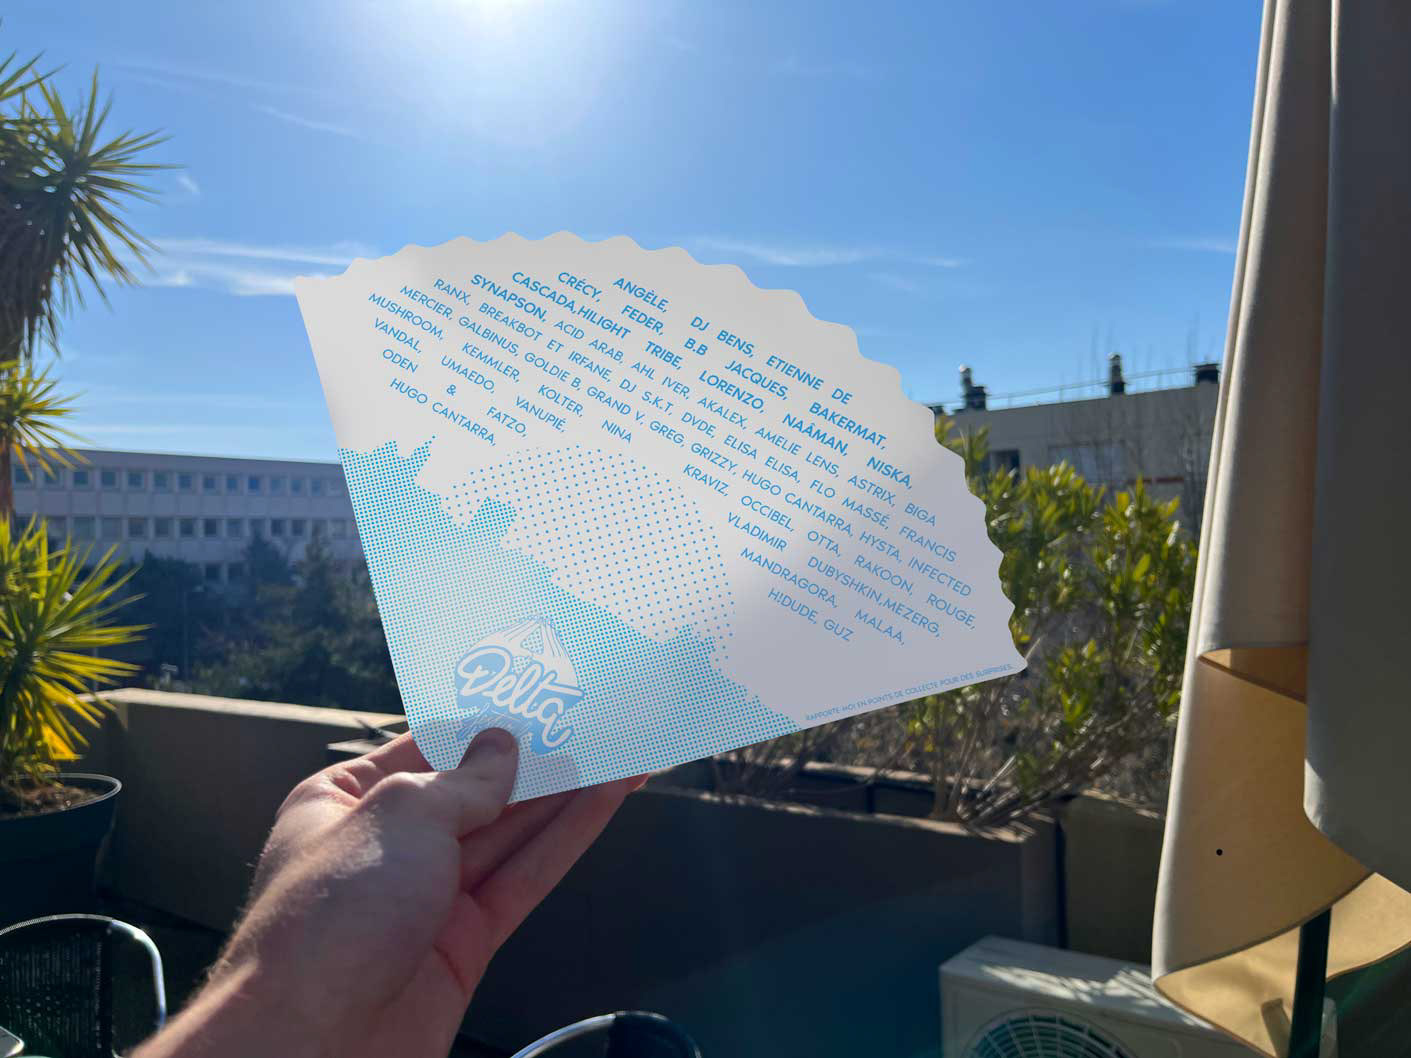 ANGÈLE, DJ BENS, ETIENNE DE
CRÉCY, FEDER, B.B JACQUES, BAKERMAT,
CASCADA,HILIGHT TRIBE, LORENZO, NAÂMAN, NISKA
SYNAPSON, ACID ARAB, AHL IVER, AKALEX, AMELIE LENS, ASTRIX, BIGA
RANX, BREAKBOT ET IRFANE, DJ S.K.T, DVDE, ELISA ELISA, FLO MASSÉ, FRANCIS
MERCIER, GALBINUS, GOLDIE B, GRAND V, GREG, GRIZZY, HUGO CANTARRA, HYSTA, INFECTED
MUSHROOM, KEMMLER, KOLTER, NINA KRAVIZ, OCCIBEL, OTTA, RAKOON, ROUGE,
VANDAL, UMAEDO, VANUPIÉ, VLADIMIR DUBYSHKIN,MEZERG,
ODEN & FATZO, MANDRAGORA, MALAA,
HUGO CANTARRA, H!DUDE, GUZ
Delta
RAPPORTE-MOI EN POINTS DE COLLECTE POUR DES SURPRISES.